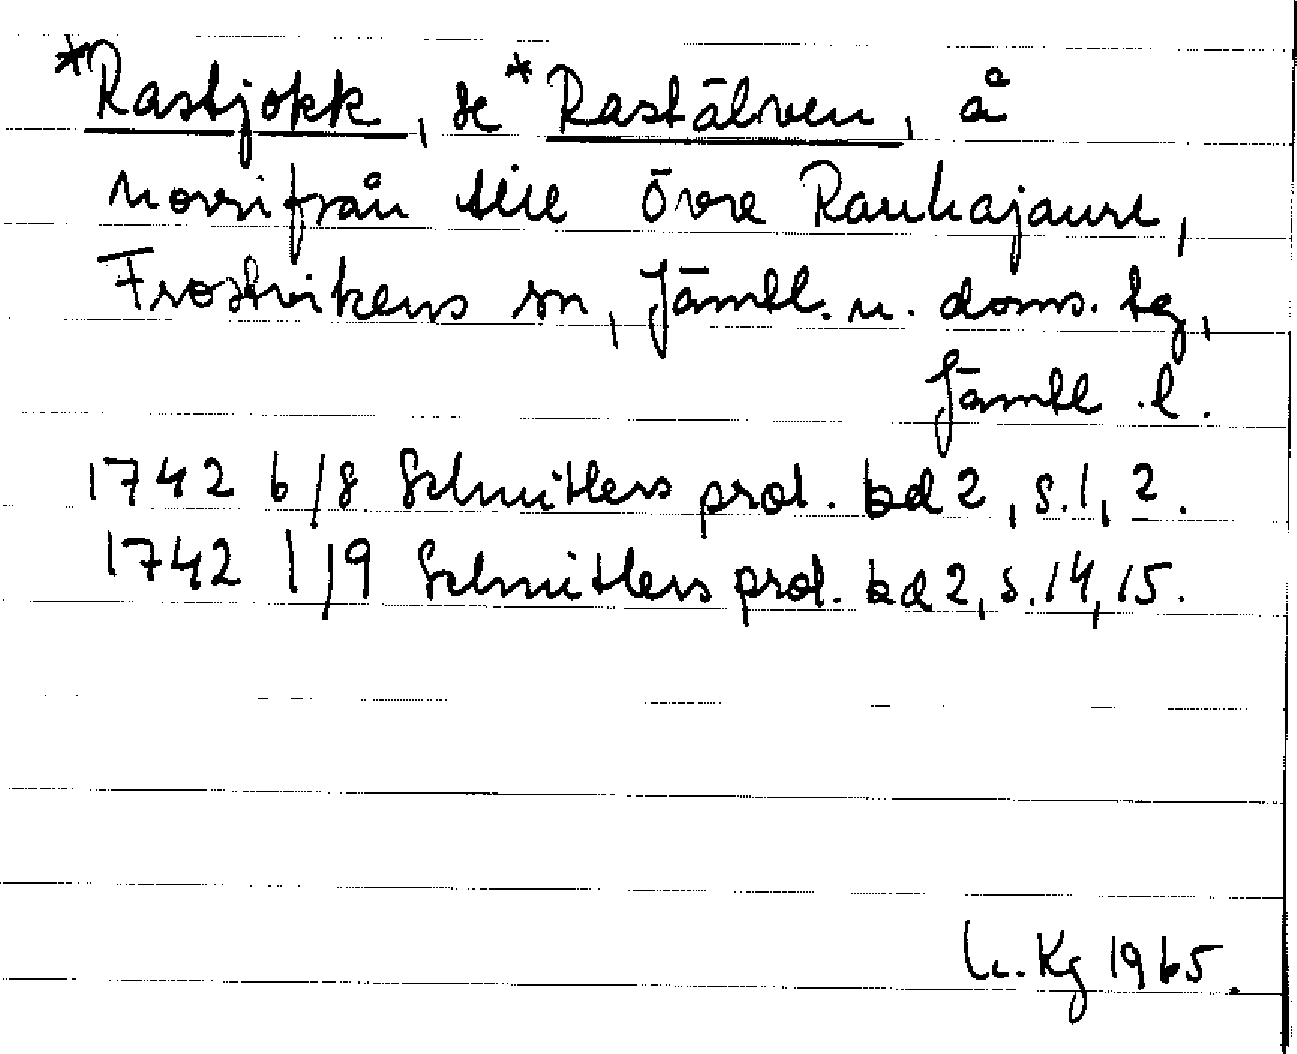 *Rastjokk, se *Rastälven, å
norrifrån till Övre Raukajaure,
Frostvikens sn, Jämtl. n. doms. tg,
Jämtl. l.
1742 6/8 Schnitlers prot. bd 2, s. 1, 2.
1742 1/9 Schnitlers prot. bd 2, s. 14, 15.
Kg 1965.